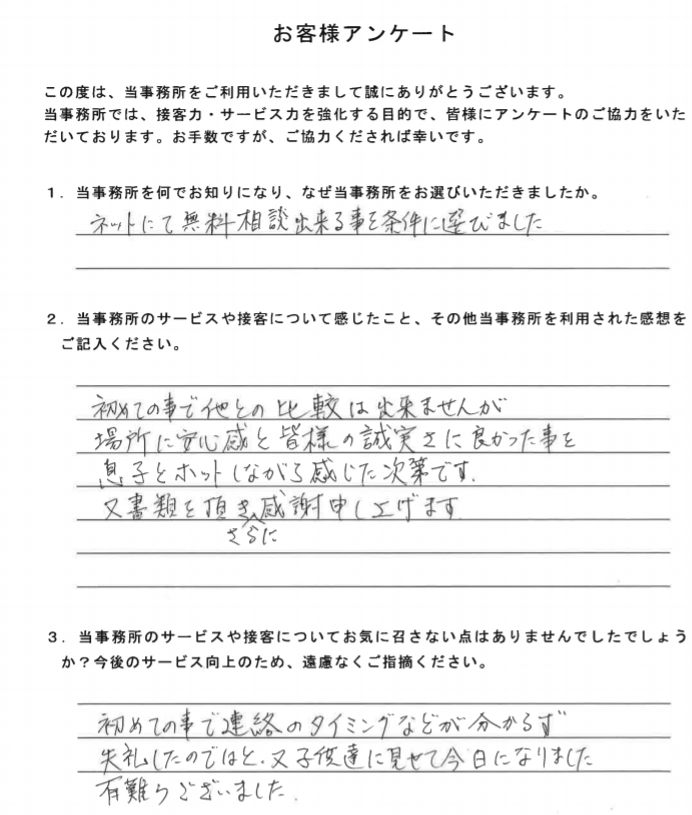 お客様アンケート
この度は、当事務所をご利用いただきまして誠にありがとうございます。
当事務所では、接客力・サービス力を強化する目的で、皆様にアンケートのご協力をいた
だいております。お手数ですが、ご協力くだされば幸いです。
1．当事務所を何でお知りになり、なぜ当事務所をお選びいただきましたか。
ネットにて無料相談出来る事を条件に選びました
2．当事務所のサービスや接客について感じたこと、その他当事務所を利用された感想を
ご記入ください。
初めての事で他との比較は出来ませんが
場所に安心感と皆様の誠実さに良かった事を
息子とホットしながら感じた次第です.
又書類を頂き感謝申し上げます.
さらに
3．当事務所のサービスや接客についてお気に召さない点はありませんでしたでしょう
か？今後のサービス向上のため、遠慮なくご指摘ください。
初めての事で連絡のタイミングなどが分からず
失礼したのではと.又子供達に見せて今日になりました
有難うございました.